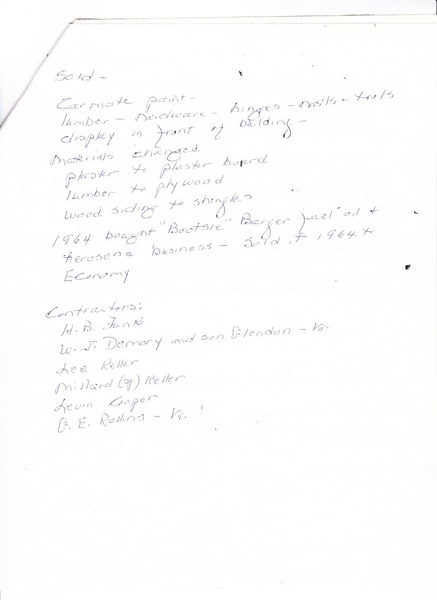 Sold -
Carmote paint -
lumber - hardware - hinges - nails - tools
display in front of building -
Materials changed
plaster to plaster board
lumber to plywood
wood siding to shingles
1964 bought "Bootsie" Barger fuel oil +
kerosene business - Sold it 1964 to
Economy
Contractors:
H. B. Funk
W. J. Demory and son Glendon - Va.
Lee Keller
Millard Keller
Levin Cooper
E. Rollins - Va.